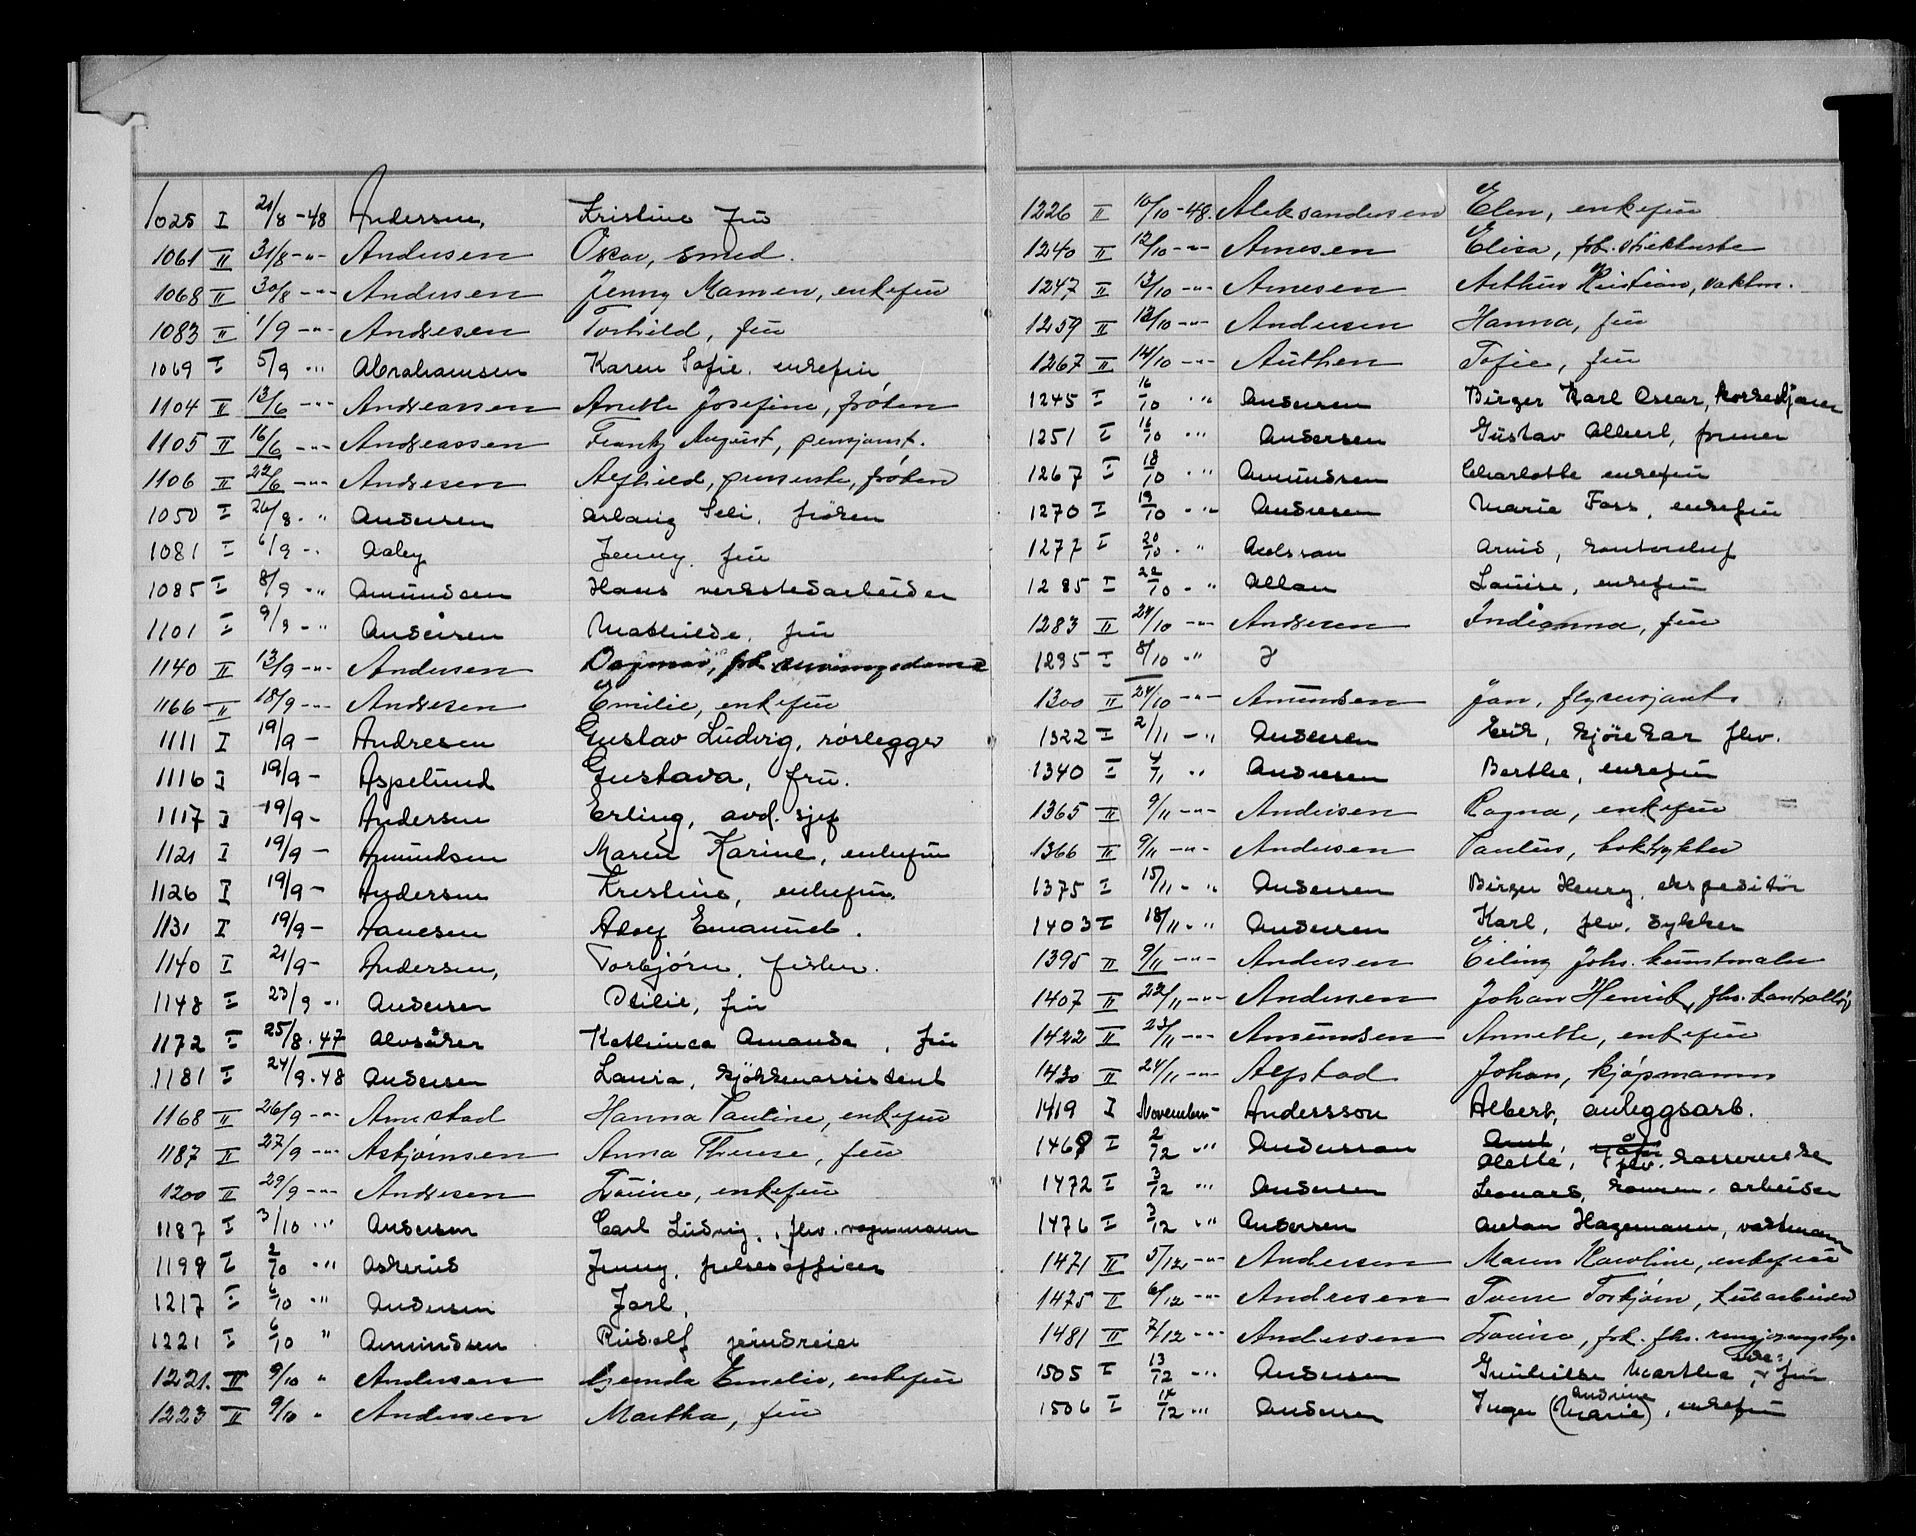 1025 I 21/8-48 Andersen, Kristine fru
1061 II 31/8 -"- Andersen Oskar, smed.
1068 II 30/8 -"- Andersen Jenny Mamen, enkefru
1083 II 1/9 -"- Andresen Torhild, fru
1069 I 5/9 -"- Abrahamsen Karen Sofie, enkefru
1104 II 13/6 -"- Andreassen Anette Josefine, frøken
1105 II 16/6 -"- Andreassen Frantz August, pensjonist.
1106 II 22/6 -"- Andresen Alfhild, frøken
1050 I 26/8 -" Andersen Aslaug Seli, frøken
1081 I 6/9 -" Aaby Jenny, fru
1085 I 8/9 -" Amundsen Hans verkstedarbeider
1101 I 9/9 -" Andersen Mathilde, fru
1140 II 13/9 -"- Andersen Dagmar, frk.
1166 II 18/9 -"- Andresen Emilie, enkefru
1111 I 19/9 - Andresen Gustav Ludvig, rørlegger
1116 I 19/9 - Aspelund Gustava, fru.
1117 I 19/9 - Andersen Erling, avd. sjef
1121 I 19/9 - Amundsen Maren Karine, enkefru
1126 I 19/9 - Andersen Kristine, enkefru.
1131 I 19/9 - Aanesen Adolf Emanuel.
1140 I 21/9 - Andersen, Torbjørn, fisker.
1148 I 23/9 -" Andersen Otilie, fru
1172 I 25/8.47 Alvsåker Kathinca Amanda, fru
1181 I 24/9.48 Andersen Laura, kjøkkenassistent
1168 II 26/9 -"- Arnestad Hanna Pauline, enkefru
1187 II 27/9 -"- Asbjørnsen Anna Therese, fru
1200 II 29/9 -"- Andresen Lovise, enkefru
1187 I 3/10 -" Andersen Carl Ludvig, fhv. vognmann
1199 I 2/10 -" Askerud Jenny, frelsesofficer
1217 I 6/10 -" Andersen Jarl,
1221 I 6/10 " Amundsen Rudolf
1221. II 9/10 " Andersen Gunda Emelie, enkefru
1223 II 9/10 " Andersen Martha, fru
1226 II 10/10-48. Aleksandersen Elen, enkefru
1240 II 12/10 -"- Arnesen Elisa, frk.
1247 II 13/10 -"- Arnesen Arthur Kristian, vaktm.
1259 II 13/10 -"- Andersen Hanna, fru
1267 II 14/10 -"- Authen Sofie, fru
1245 I 16/10 -" Andersen Birger Karl Oscar,
1251 I 16/10 -" Andersen Gustav Albert, former
1267 I 18/10 -" Amundsen Charlotte enkefru
1270 I 19/10 -" Andresen Marie Foss, enkefru
1277 I 20/10 -" Axelsson Arvid, kontorchef
1285 I 22/10 -" Allan Louise, enkefru
1283 II 24/10 -"- Andresen Indianna, fru
1295 I 8/10 -"
1300 II 24/10 -"- Amundsen Jan, flysersjant
1322 I 2/11 -" Andersen Erik, fhv.
1340 I 4/11 -" Andresen Berthe, enkefru
1365 II 9/11 -"- Andersen Ragna, enkefru
1366 II 9/11 -"- Andersen Paulus, boktrykker
1375 I 15/11 -" Andersen Birger Henry, ekspeditør
1403 I 18/11 -" Andersen Karl, fhv. dykker
1395 II 9/11 -"- Andersen Erling Johs. kunstmaler
1407 II 22/11 -"- Andersen Johan Henrik, fhv. kontrollør
1422 II 23/11 -"- Amundsen Annette, enkefru
1430 II 24/11 -"- Alfstad Johan, kjøpmann
1419 I November- Andersson Albert, anleggsarb.
1468 I 2/12 -" Anderssen Alette, fhv. kassererske
1472 I 3/12 -" Andersen Leonard, komm. arbeider
1476 I 3/12 -" Andersen Anton Hagemann, vaktmann
1471 II 5/12 -"- Andersen Maren Karoline, enkefru
1475 II 6/12 -"- Andresen Sverre Torbjørn,
1481 II 7/12 -"- Andersen Lovise, frk. fhv.
1505 I 13/12 -" Andersen Gunhilde Marthea, fru
1506 I 14/12 -" Andersen Inger (Marie) Andrine, enkefru